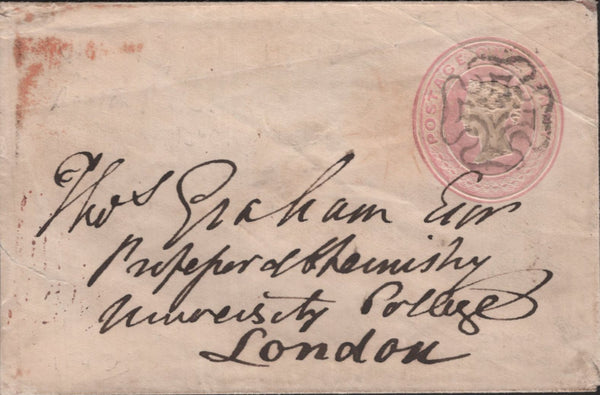 POSTAGE
Thos Graham Esqr
Professor of Chemistry
University College
London